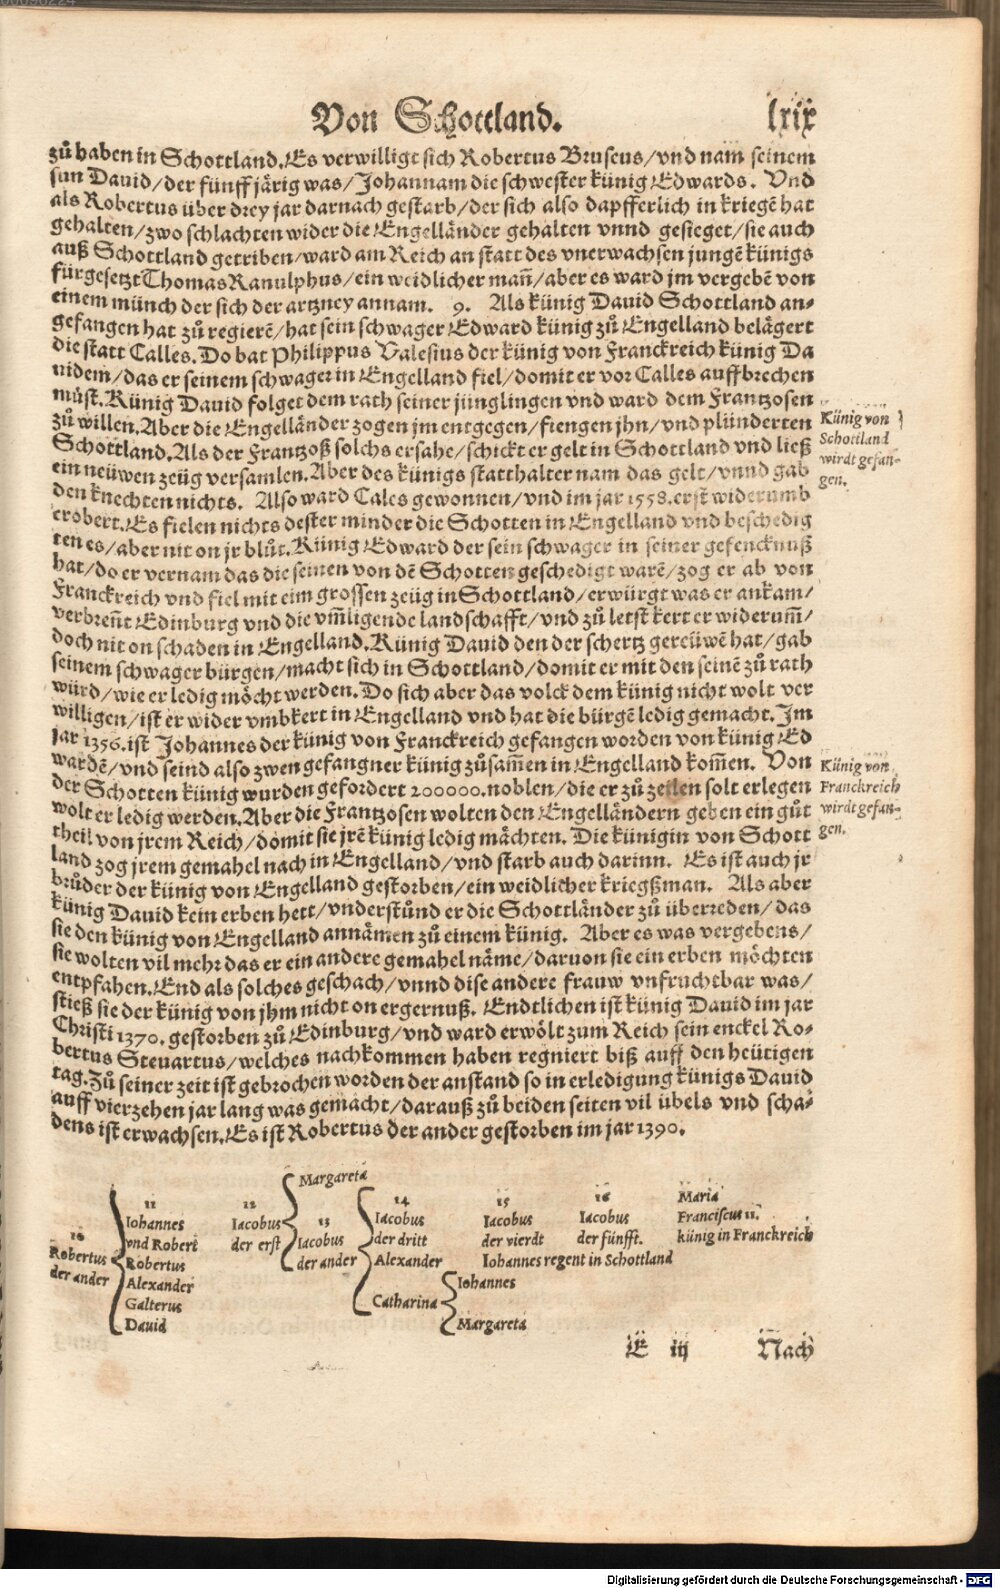 Von Schottland. lxix
zů haben in Schottland. Es verwilligt sich Robertus Bruseus/vnd nam seinem
sun David/der fünff järig was/Johannam die schwester künig Edwards. Vnd
als Robertus über drey jar darnach gestarb/der sich also dapfferlich in kriegē hat
gehalten/zwo schlachten wider die Engelländer gehalten vnnd gesieget/sie auch
auß Schottland getriben/ward am Reich an statt des vnerwachsen jungē künigs
fürgesetzt Thomas Ranulphus/ein weidlicher mañ/aber es ward jm vergebē von
einem münch der sich der artzney annam. 9. Als künig David Schottland an-
gefangen hat zů regierē/hat sein schwager Edward künig zů Engelland belägert
die statt Calles. Do bat Philippus Valesius der künig von Franckreich künig Da
uidem/das er seinem schwager in Engelland fiel/domit er vor Calles auffbrechen
můst. Künig David folget dem rath seiner jünglingen vnd ward dem Frantzosen
zů willen. Aber die Engelländer zogen jm entgegen/fiengen jhn/vnd plünderten
Schottland. Als der Frantzoß solchs ersahe/schickt er gelt in Schottland vnd ließ
ein neüwen zeüg versamlen. Aber des künigs statthalter nam das gelt/vnnd gab
den knechten nichts. Also ward Cales gewonnen/vnd im jar 1558. erst widerumb
erobert. Es fielen nichts dester minder die Schotten in Engelland vnd beschedig
ten es/aber nit on jr blůt. Künig Edward der sein schwager in seiner gefencknuß
hat/do er vernam das die seinen von dē Schotten geschedigt warē/zog er ab von
Franckreich vnd fiel mit eim grossen zeüg in Schottland/erwürgt was er ankam/
verbreñt Edinburg vnd die vm̃ligende landschafft/vnd zů letst kert er widerum̃/
doch nit on schaden in Engelland. Künig David den der schertz gereüwē hat/gab
seinem schwager bürgen/macht sich in Schottland/domit er mit den seinē zů rath
würd/wie er ledig möcht werden. Do sich aber das volck dem künig nicht wolt ver
willigen/ist er wider vmbkert in Engelland vnd hat die bürgē ledig gemacht. Im
jar 1356. ist Johannes der künig von Franckreich gefangen worden von künig Ed
wardē/vnd seind also zwen gefangner künig zůsam̃en in Engelland kom̃en. Von
der Schotten künig wurden gefordert 200000. noblen/die er zů zeilen solt erlegen
wolt er ledig werden. Aber die Frantzosen wolten den Engelländern geben ein gůt
theil von jrem Reich/domit sie jrē künig ledig mächten. Die künigin von Schott
land zog jrem gemahel nach in Engelland/vnd starb auch darinn. Es ist auch jr
brůder der künig von Engelland gestorben/ein weidlicher kriegßman. Als aber
künig David kein erben hett/vnderstůnd er die Schottländer zů überreden/das
sie den künig von Engelland annämen zů einem künig. Aber es was vergebens/
sie wolten vil mehr das er ein andere gemahel näme/daruon sie ein erben möchten
entpfahen. End als solches geschach/vnnd dise andere frauw vnfruchtbar was/
stieß sie der künig von jhm nicht on ergernuß. Endtlichen ist künig David im jar
Christi 1370. gestorben zů Edinburg/vnd ward erwölt zum Reich sein enckel Ro-
bertus Steuartus/welches nachkommen haben regniert biß auff den heütigen
tag. Zů seiner zeit ist gebrochen worden der anstand so in erledigung künigs David
auff vierzehen jar lang was gemacht/darauß zů beiden seiten vil übels vnd scha-
dens ist erwachsen. Es ist Robertus der ander gestorben im jar 1390.
Künig von
Schottland
wirdt gefan-
gen.
Künig von
Franckreich
wirdt gefan-
gen.
10
Robertus
der ander
11
Iohannes
vnd Robert
Robertus
Alexander
Galterus
David
12
Iacobus
der erst
Margareta
13
Iacobus
der ander
14
Iacobus
der dritt
Alexander
Catharina
Iohannes
Margareta
15
Iacobus
der vierdt
Iohannes regent in Schottland
16
Iacobus
der fünfft.
Maria
Franciscus 11.
künig in Franckreich
E iij Nach
Digitalisierung gefördert durch die Deutsche Forschungsgemeinschaft - DFG